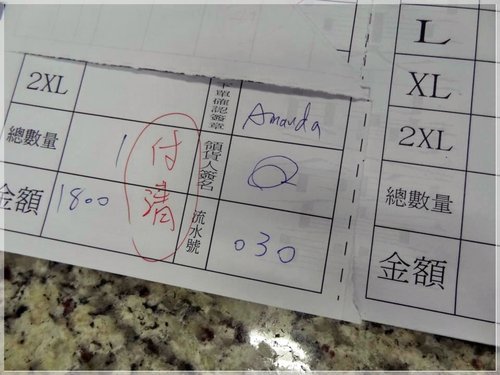 2XL
下單確認簽章
Amanda
總數量
1
付清
領貨人簽名
金額
1800
流水號
030
L
XL
2XL
總數量
金額